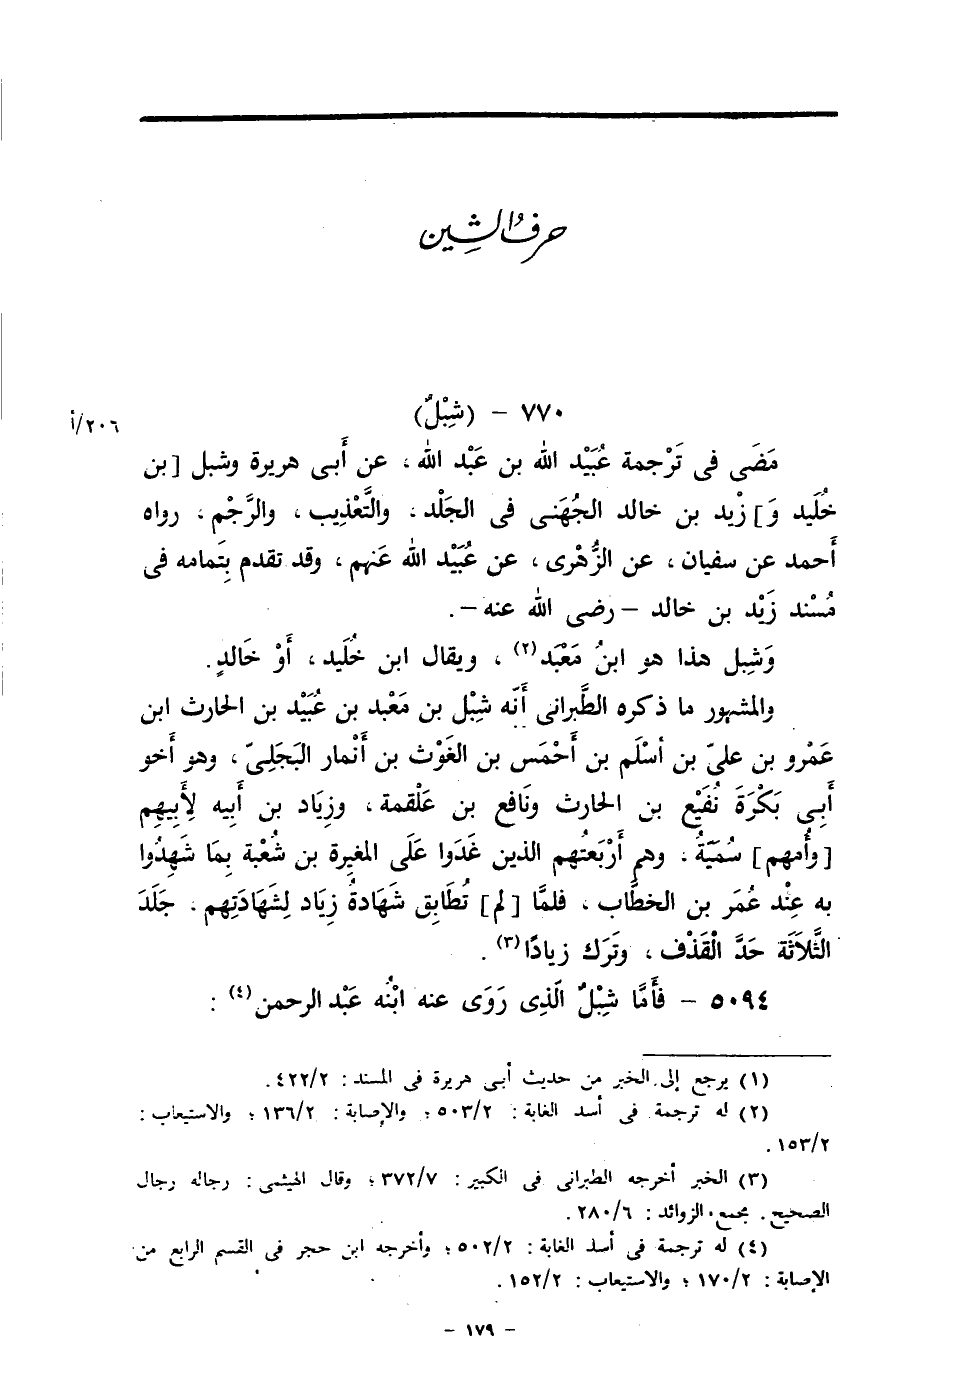 حرف الشين
٧٧٠ - (شِبْلٌ)
٢٠٦/أ
مَضَى فى تَرْجمة عُبَيْد الله بن عَبْد الله ، عن أَبى هريرة وشبل [بن
خُلَيد وَ] زْيد بن خالد الجُهَنى فى الجَلْد ، والتَّعْذِيب ، والرَّجْم ، رواه
أَحمد عن سفيان ، عن الزُّهْرى ، عن عُبَيْد الله عَنهم ، وقد تقدم بِتَمامه فى
مُسْند زَيْد بن خالد – رضى الله عنه –.
وَشِبل هذا هو ابنُ مَعْبَد(٢) ، ويقال ابن خُلَيد ، أَوْ خَالدٍ.
والمشهور ما ذكره الطَّبرانى أَنَّه شِبْل بن مَعْبد بن عُبَيْد بن الحارث ابن
عَمْرو بن علىّ بن أسْلَم بن أَحْمَس بن الغَوْث بن أَنْمار البَجَلِىّ ، وهو أَخو
أَبِى بَكْرَةَ نُفَيْع بن الحارث ونَافع بن عَلْقمة ، وزِيَاد بن أَبيه لِأَبِيهم
[وأُمهم] سُمَيَّةُ ، وهم أَرْبَعتُهم الذين غَدَوا عَلَى المغيرة بن شُعْبة بِمَا شَهِدُوا
به عِنْد عُمَر بن الخطَّاب ، فلمَّا [لم] تُطَابِق شَهَادةُ زِيَاد لِشَهَادَتِهم ، جَلَدَ
الثَّلاَثَة حَدَّ الْقَذْف ، وتَرَك زيادًا(٣) .
٥٠٩٤ - فأَمَّا شِبْلٌ الَّذِى رَوَى عنه ابْنُه عَبْد الرحمن(٤) :
(١) يرجع إلى الخبر من حديث أبى هريرة فى المسند : ٤٢٢/٢.
(٢) له ترجمة فى أسد الغابة : ٥٠٣/٢ ؛ والإصابة : ١٣٦/٢ ؛ والاستيعاب :
١٥٣/٢ .
(٣) الخبر أخرجه الطبرانى فى الكبير : ٣٧٢/٧ ؛ وقال الهيثمى : رجاله رجال
الصحيح . مجمع الزوائد : ٢٨٠/٦ .
(٤) له ترجمة فى أسد الغابة : ٥٠٢/٢ ؛ وأخرجه ابن حجر فى القسم الرابع من
الإصابة : ١٧٠/٢ ؛ والاستيعاب : ١٥٢/٢ .
- ١٧٩ -